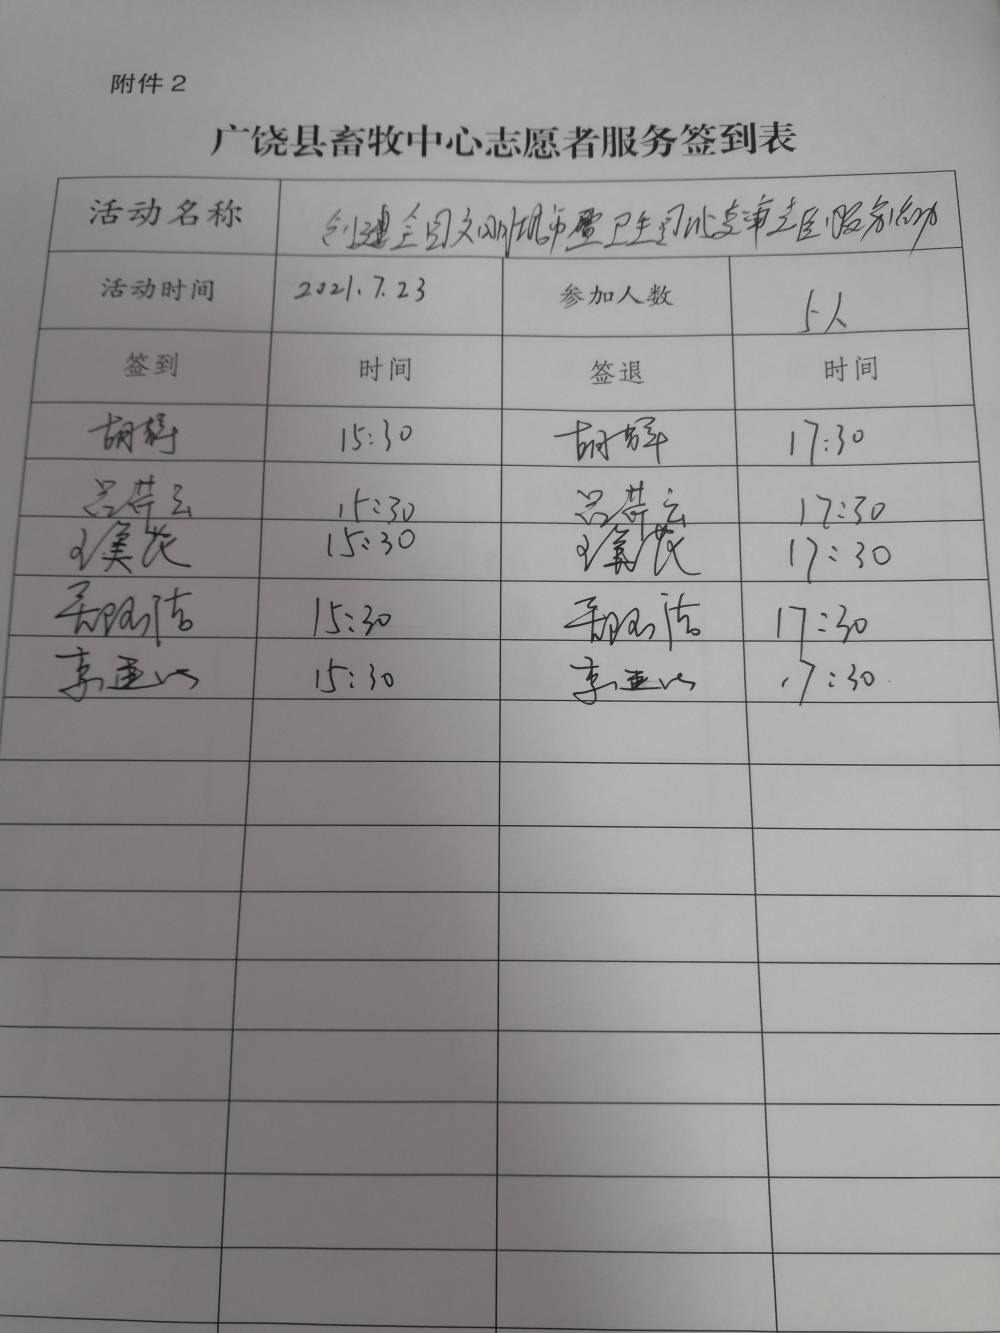 附件2
广饶县畜牧中心志愿者服务签到表
活动名称 创建全国文明城市暨卫生 复审志愿服务活动
活动时间 2021.7.23 参加人数 5人
签到 时间 签退 时间
胡 15:30 胡 17:30
吕 云 15:30 吕 云 17:30
王美 15:30 王美 17:30
洁 15:30 洁 17:30
李 15:30 李 17:30